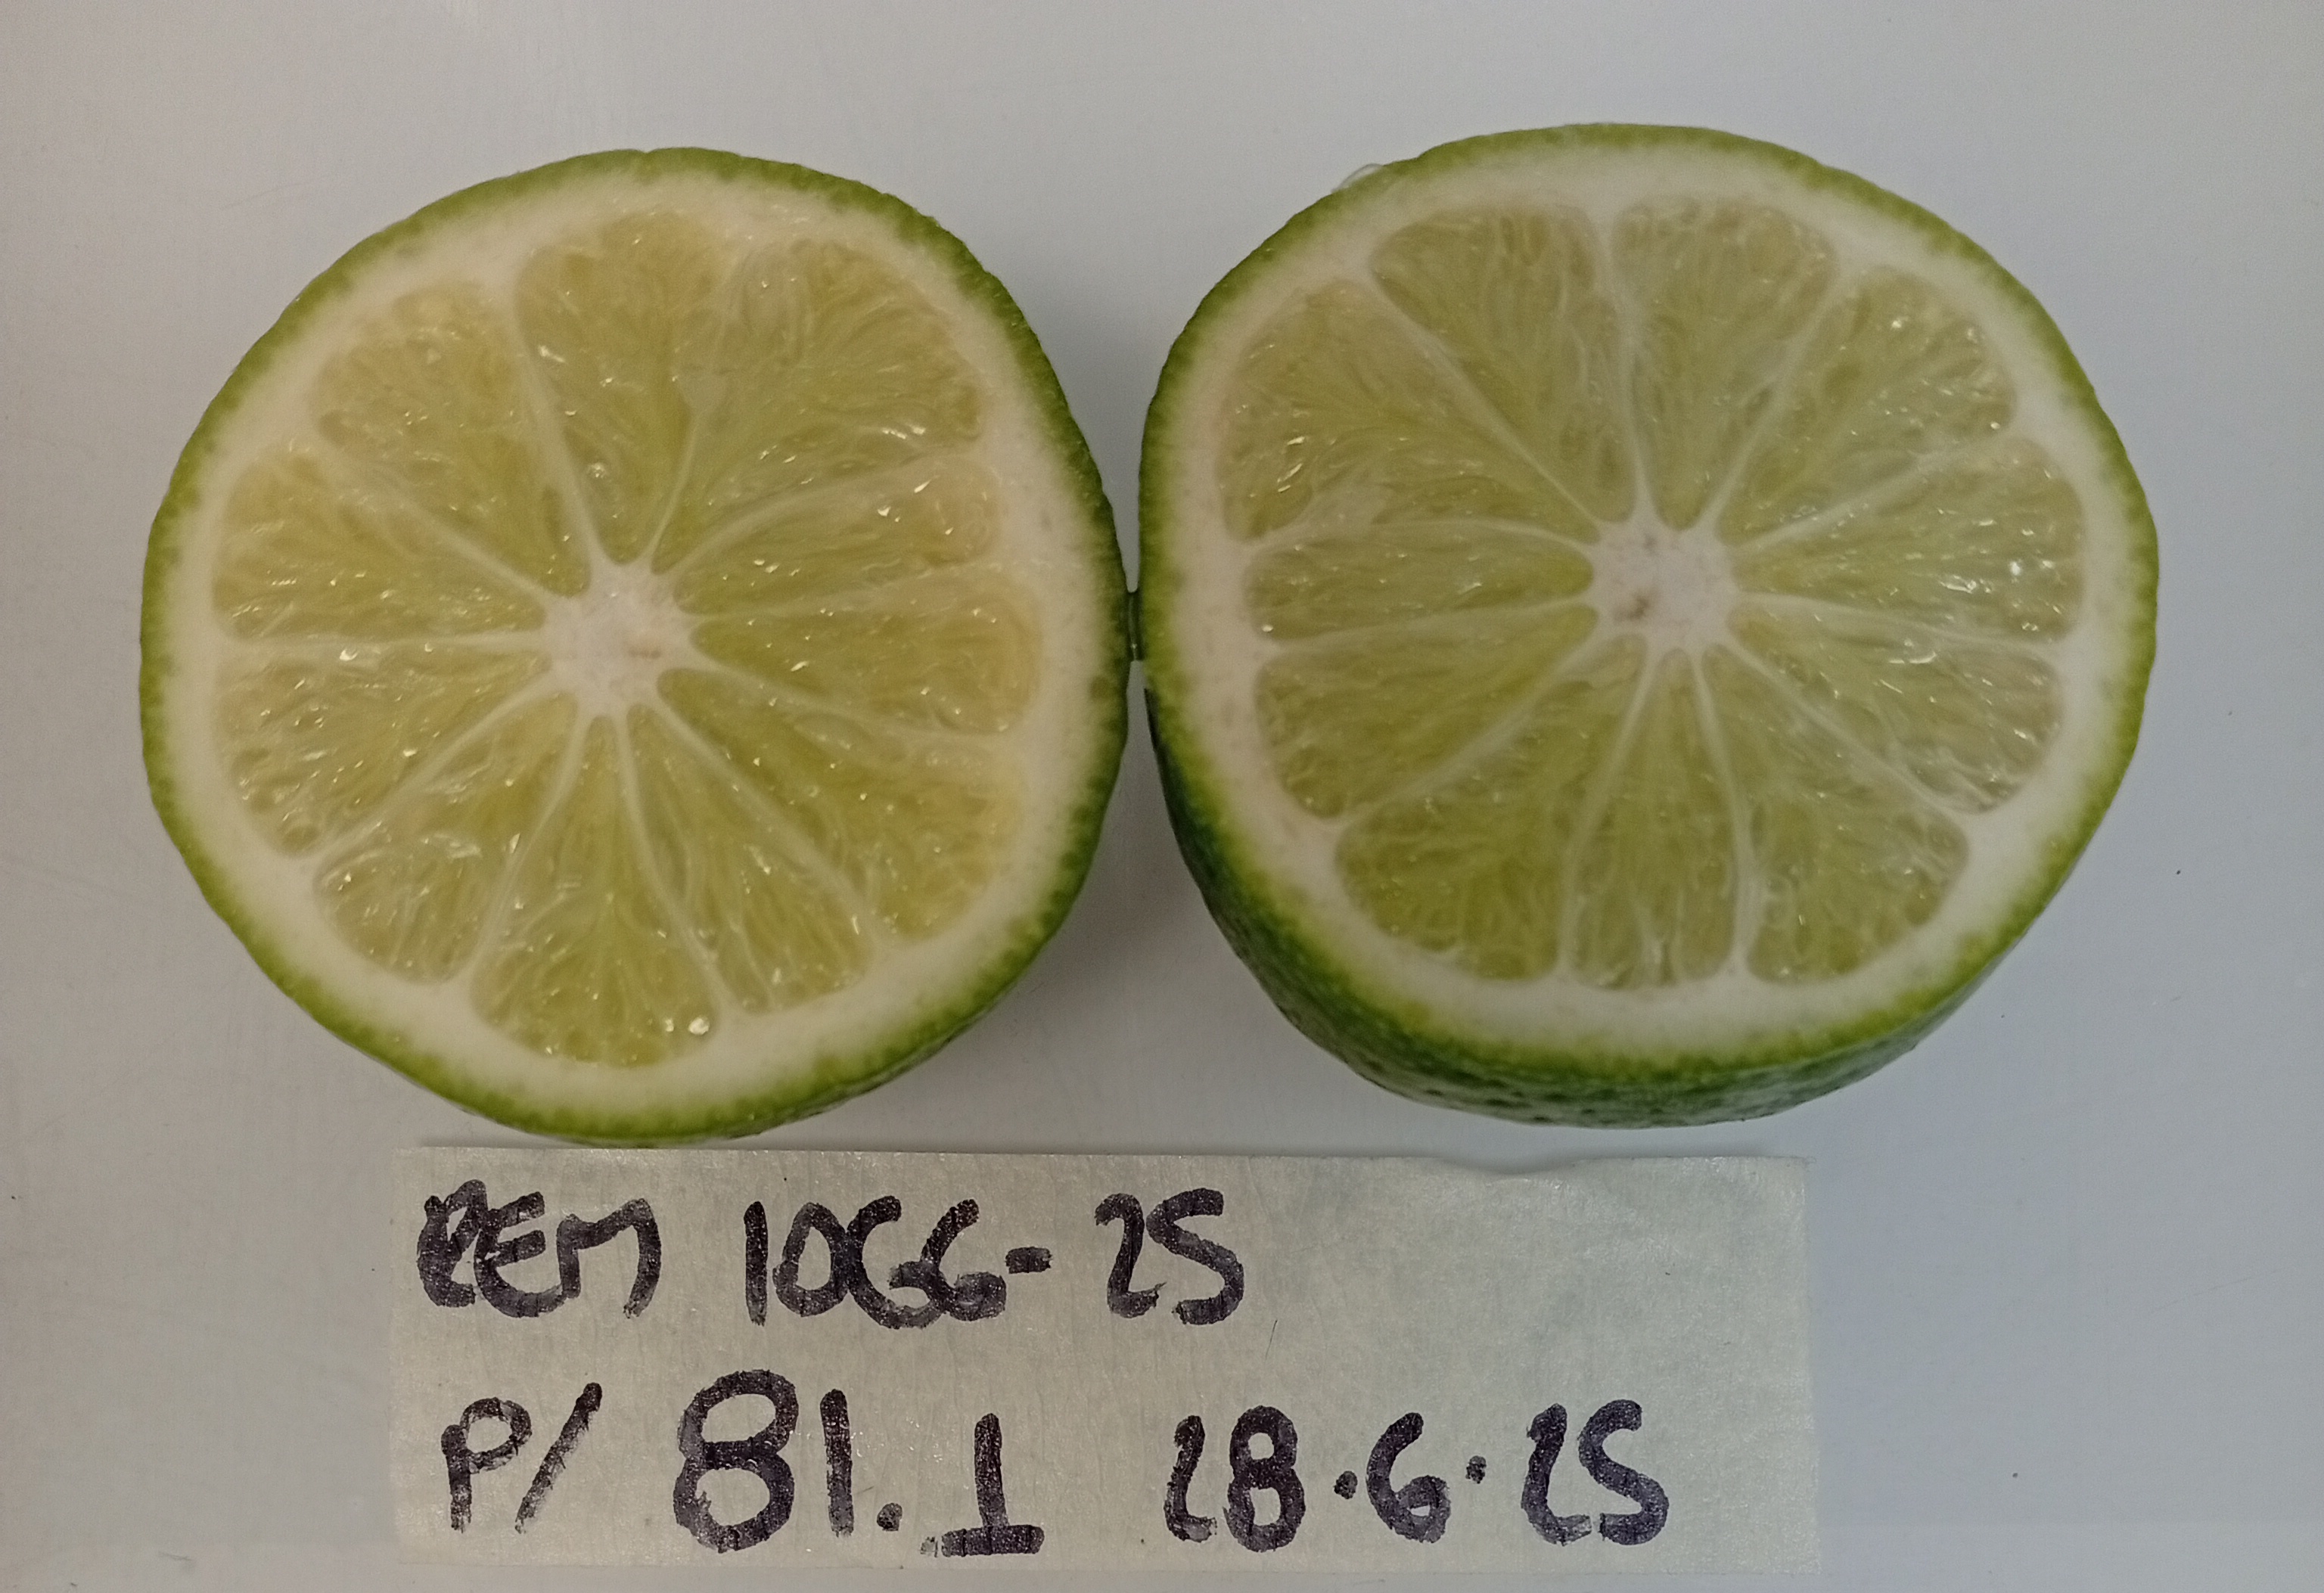 REM 1066-25
P/ 81.1 28.6.25